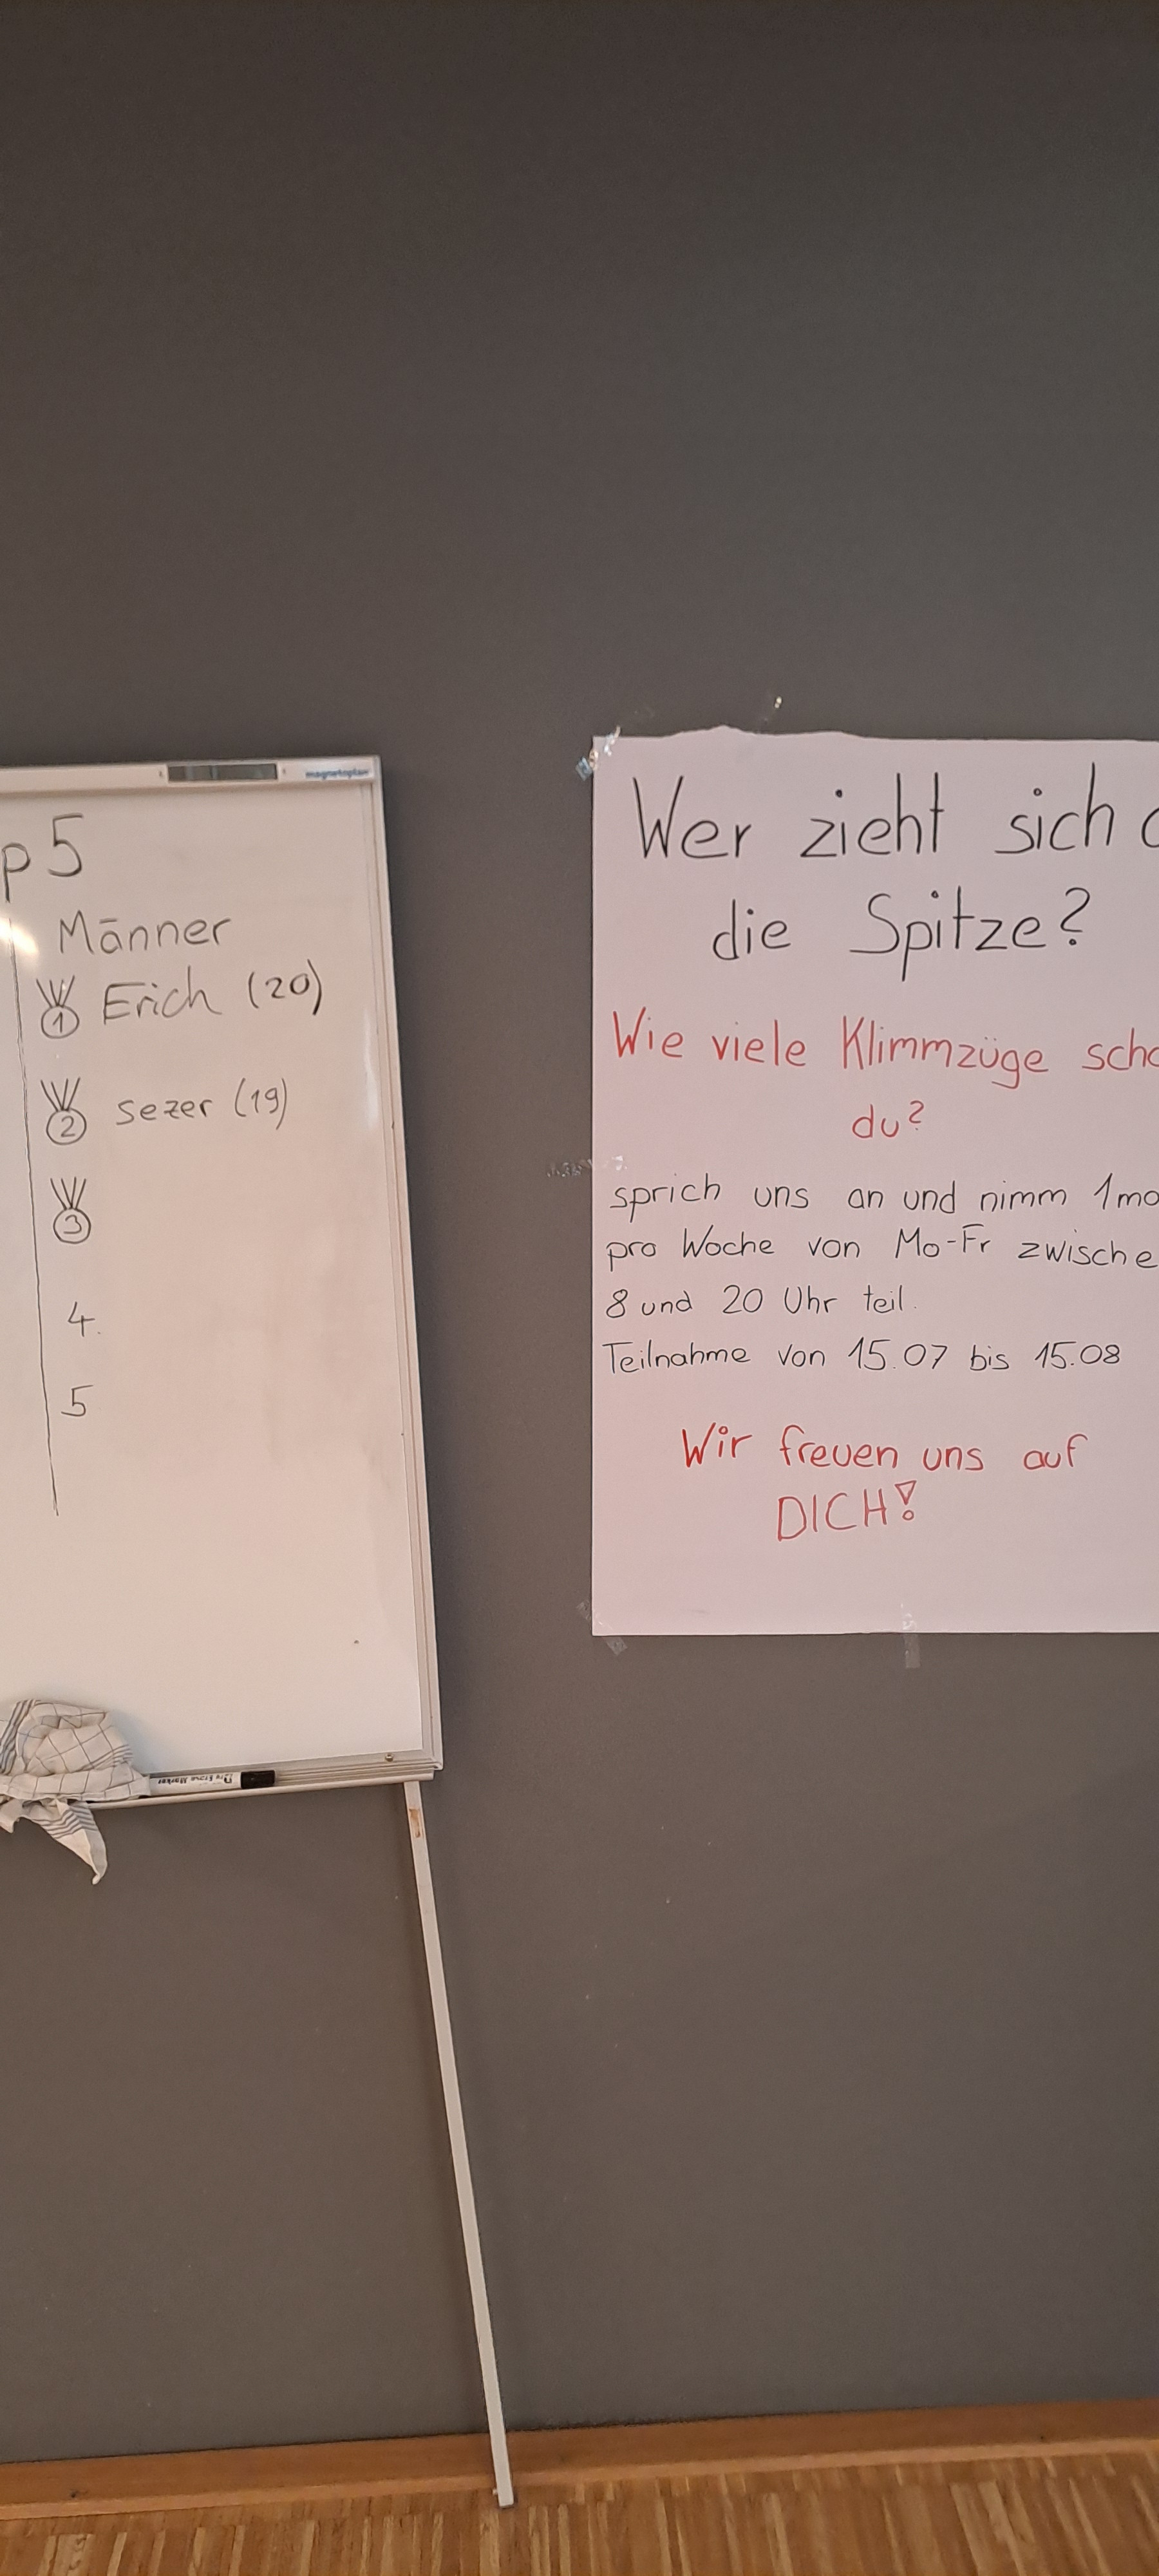 magnetoplan
p 5
Männer
1 Erich (20)
2 sezer (19)
3
4.
5
Wer zieht sich
die Spitze?
Wie viele Klimmzüge scha
du?
sprich uns an und nimm 1ma
pro Woche von Mo-Fr zwische
8 und 20 Uhr teil.
Teilnahme von 15.07 bis 15.08
Wir freuen uns auf
DICH!
Marker